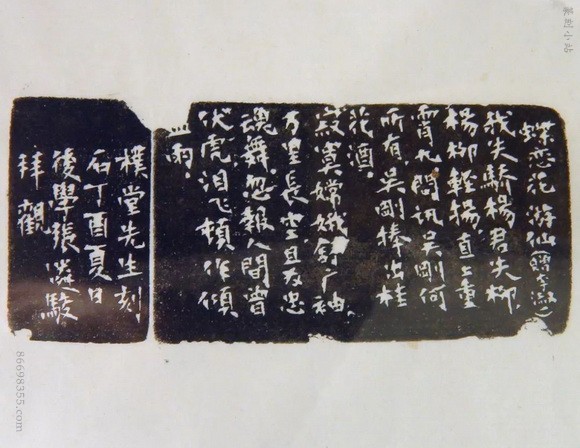 蝶恋花 游仙(贈李淑一)
我失驕楊君失柳
楊柳輕揚直上重
霄九問訊吳剛何
所有吳剛捧出桂
花酒
寂寞嫦娥舒广袖
万里長空且为忠
魂舞忽報人間曾
伏虎泪飞頓作傾
盆雨
樸堂先生刻
石丁酉夏日
後學張遴駿
拜觀
篆刻小站
86698355.com